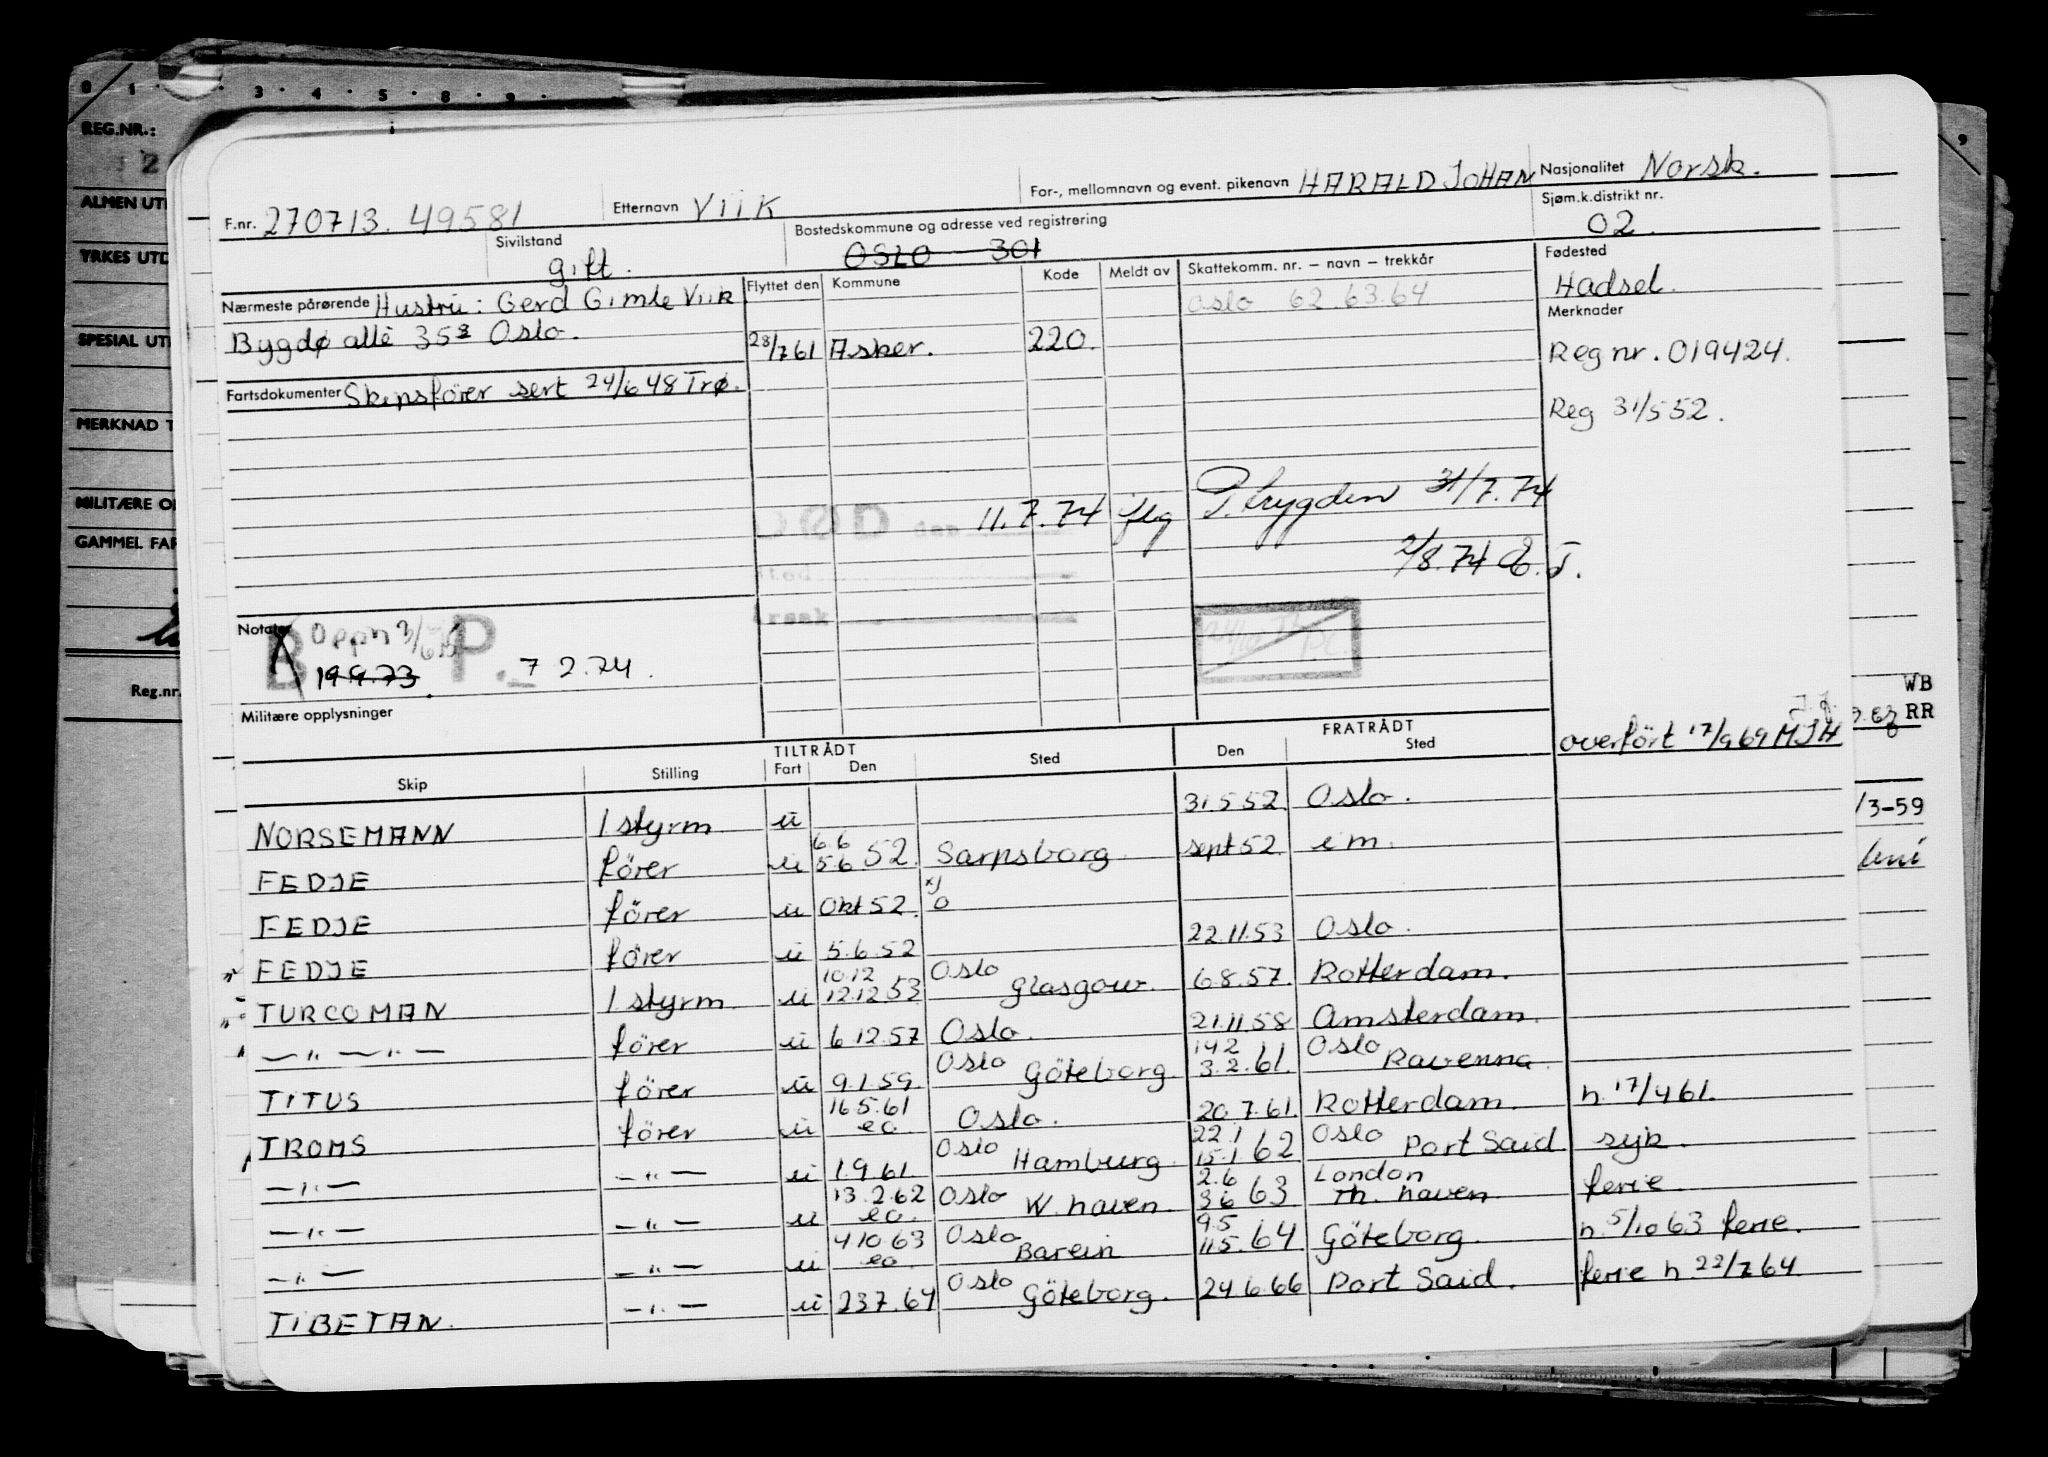 0 1 3 4 5 8 9
REG.NR.:
2
ALMEN UT
YRKES UTD
SPESIAL UT
MERKNAD T
MILITÆRE O
GAMMEL FAR
Reg.nr.
F.nr. 270713. 49581 Etternavn VIIK For-, mellomnavn og event. pikenavn HARALD JOHAN Nasjonalitet Norsk.
Sivilstand gift. Bostedskommune og adresse ved registrering OSLO 301 Sjøm.k.distrikt nr. 02.
Nærmeste pårørende Hustru: Gerd Gimle Viik Flyttet den Kommune Kode Meldt av Skattekomm. nr. – navn – trekkår Fødested Hadsel.
Oslo 62.63.64
Bygdø allè 35 Oslo. 28/7 61 Asker. 220. Merknader
Reg nr. 019424.
Fartsdokumenter Skipsförer sert 24/6 48 Trø.
Reg 31/5 52.
DØD den 11.7.74 flg P.trygden 31/7.74
sted
årsak
2/8.74
Notater
Oppn 3/6
B P.
19.9.73. 7 2.74.
Militære opplysninger
WB
RR
overfört 17/9 69 MJH
TILTRÅDT FRATRÅDT
Skip Stilling Fart Den Sted Den Sted
NORSEMANN 1 styrm u 31.5 52 Oslo.
FEDJE förer u 6.6 5.6 52. Sarpsborg sept 52. i m.
FEDJE förer u Okt 52. x) o
FEDJE förer u 5.6.52 22.11.53 Oslo.
TURCOMAN 1 styrm. u 10.12 12.12.53 Oslo Glasgow. 6.8.57. Rotterdam.
—"—"— förer u 6.12.57 Oslo. 21.11.58 Amsterdam.
TITUS förer u 9.1.59. Oslo Göteborg 14 2 3.2.61. Oslo Ravenna
TROMS förer u 16 5.61 eo. Oslo. 20.7.61. Rotterdam. n. 17/4 61.
—"— —"— u 1.9.61. Oslo Hamburg. 22.1 15.1 62 Oslo Port Said syk.
—"— —"— u 13.2.62 eo. Oslo W. haven. 2.6 3 6 63 London Th. haven ferie.
—"— —"— u 4 10.63 eo. Oslo Barein 9.5 11.5.64 Göteborg. n. 5/10 63 ferie.
TIBETAN. —"— u 23 7.64 Oslo Göteborg. 24.6.66 Port Said. ferie n. 22/7 64.
/3-59